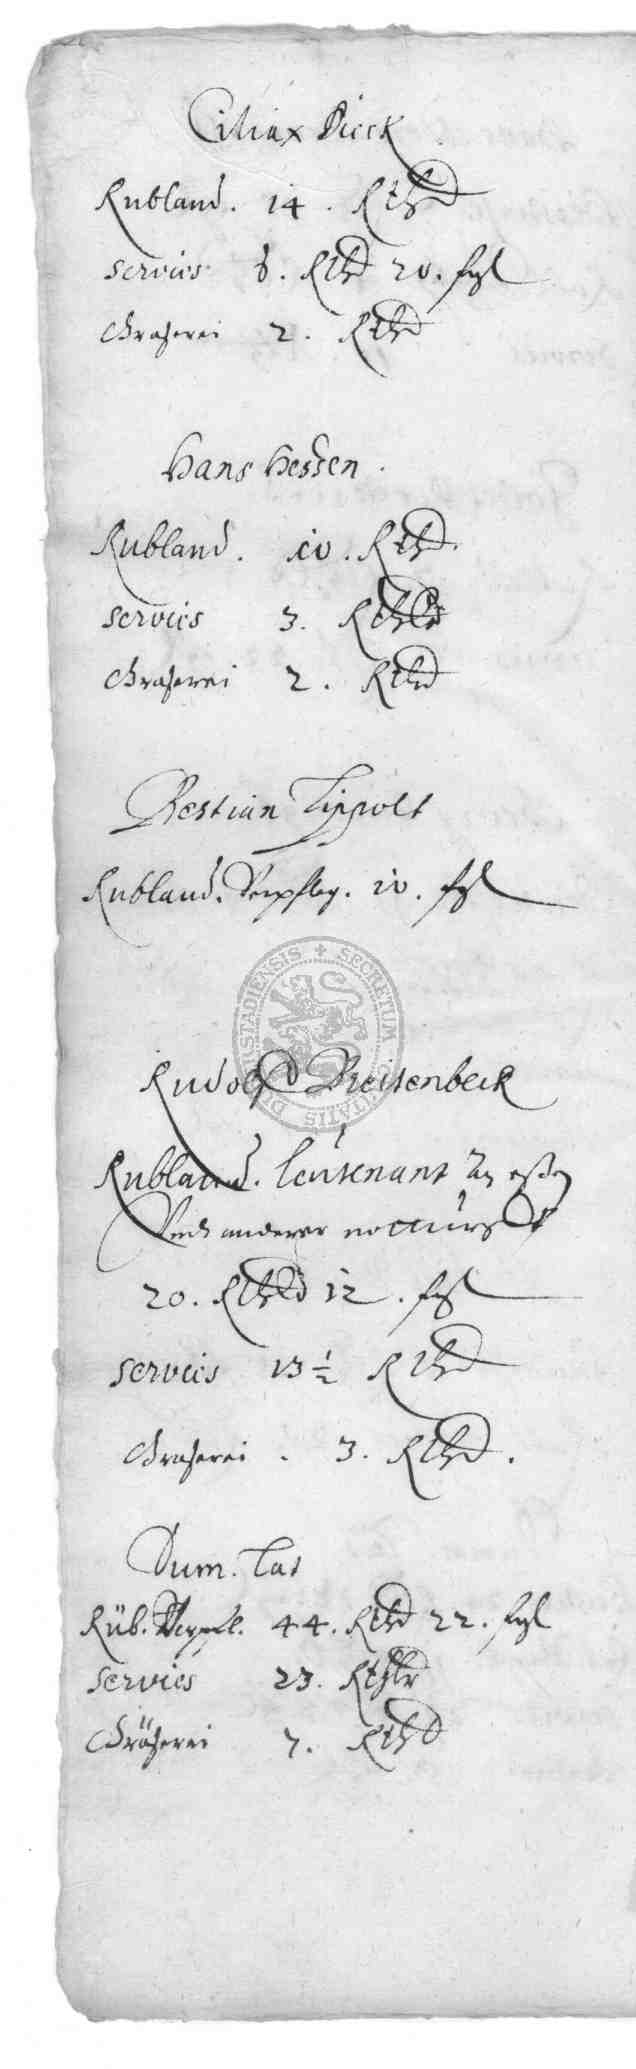 Ciliax Dieck
Rubland. 14. Rthlr
servies 8. Rthlr 20. sgl
Graserei 2. Rthlr
Hans Hessen.
Rubland. 10. Rthlr.
servies 3. Rthlr
Graserei 2. Rthlr
Bestian Tippolt
Rubland. Verpfleg. 10. sgl
SECRETUM CIVITATIS DUDERSTADIENSIS
Rudolf Breitenbeck
Rubland. leutenant zu eßen
Vndt anderer notturft
20. Rthlr 12. sgl
servies 13½ Rthlr
Graserei. 3. Rthlr.
Sum. Lat
Rüb. Verpfl. 44. Rthlr 22. sgl
servies 23. Rthlr
Gräserei 7. Rthlr